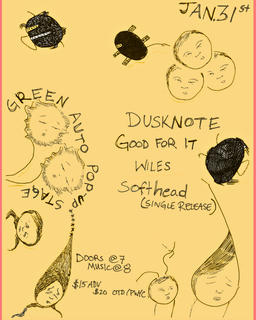 JAN 31st
GREEN AUTO POP-UP STAGE
DUSKNOTE
GOOD FOR IT
WILES
Softhead
(SINGLE RELEASE)
DOORS @7
MUSIC @8
$15 ADV
$20 OTD/PWYC